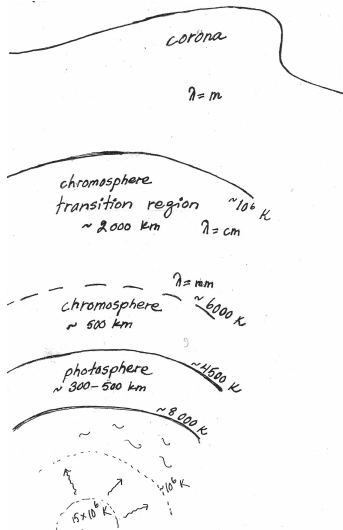 corona
λ = m
chromosphere
transition region
~ 2000 km
~10⁶ K
λ = cm
λ = mm
chromosphere
~ 500 km
~ 6000 K
photosphere
~ 300-500 km
~4500 K
~8000 K
~10⁶ K
15x10⁶ K